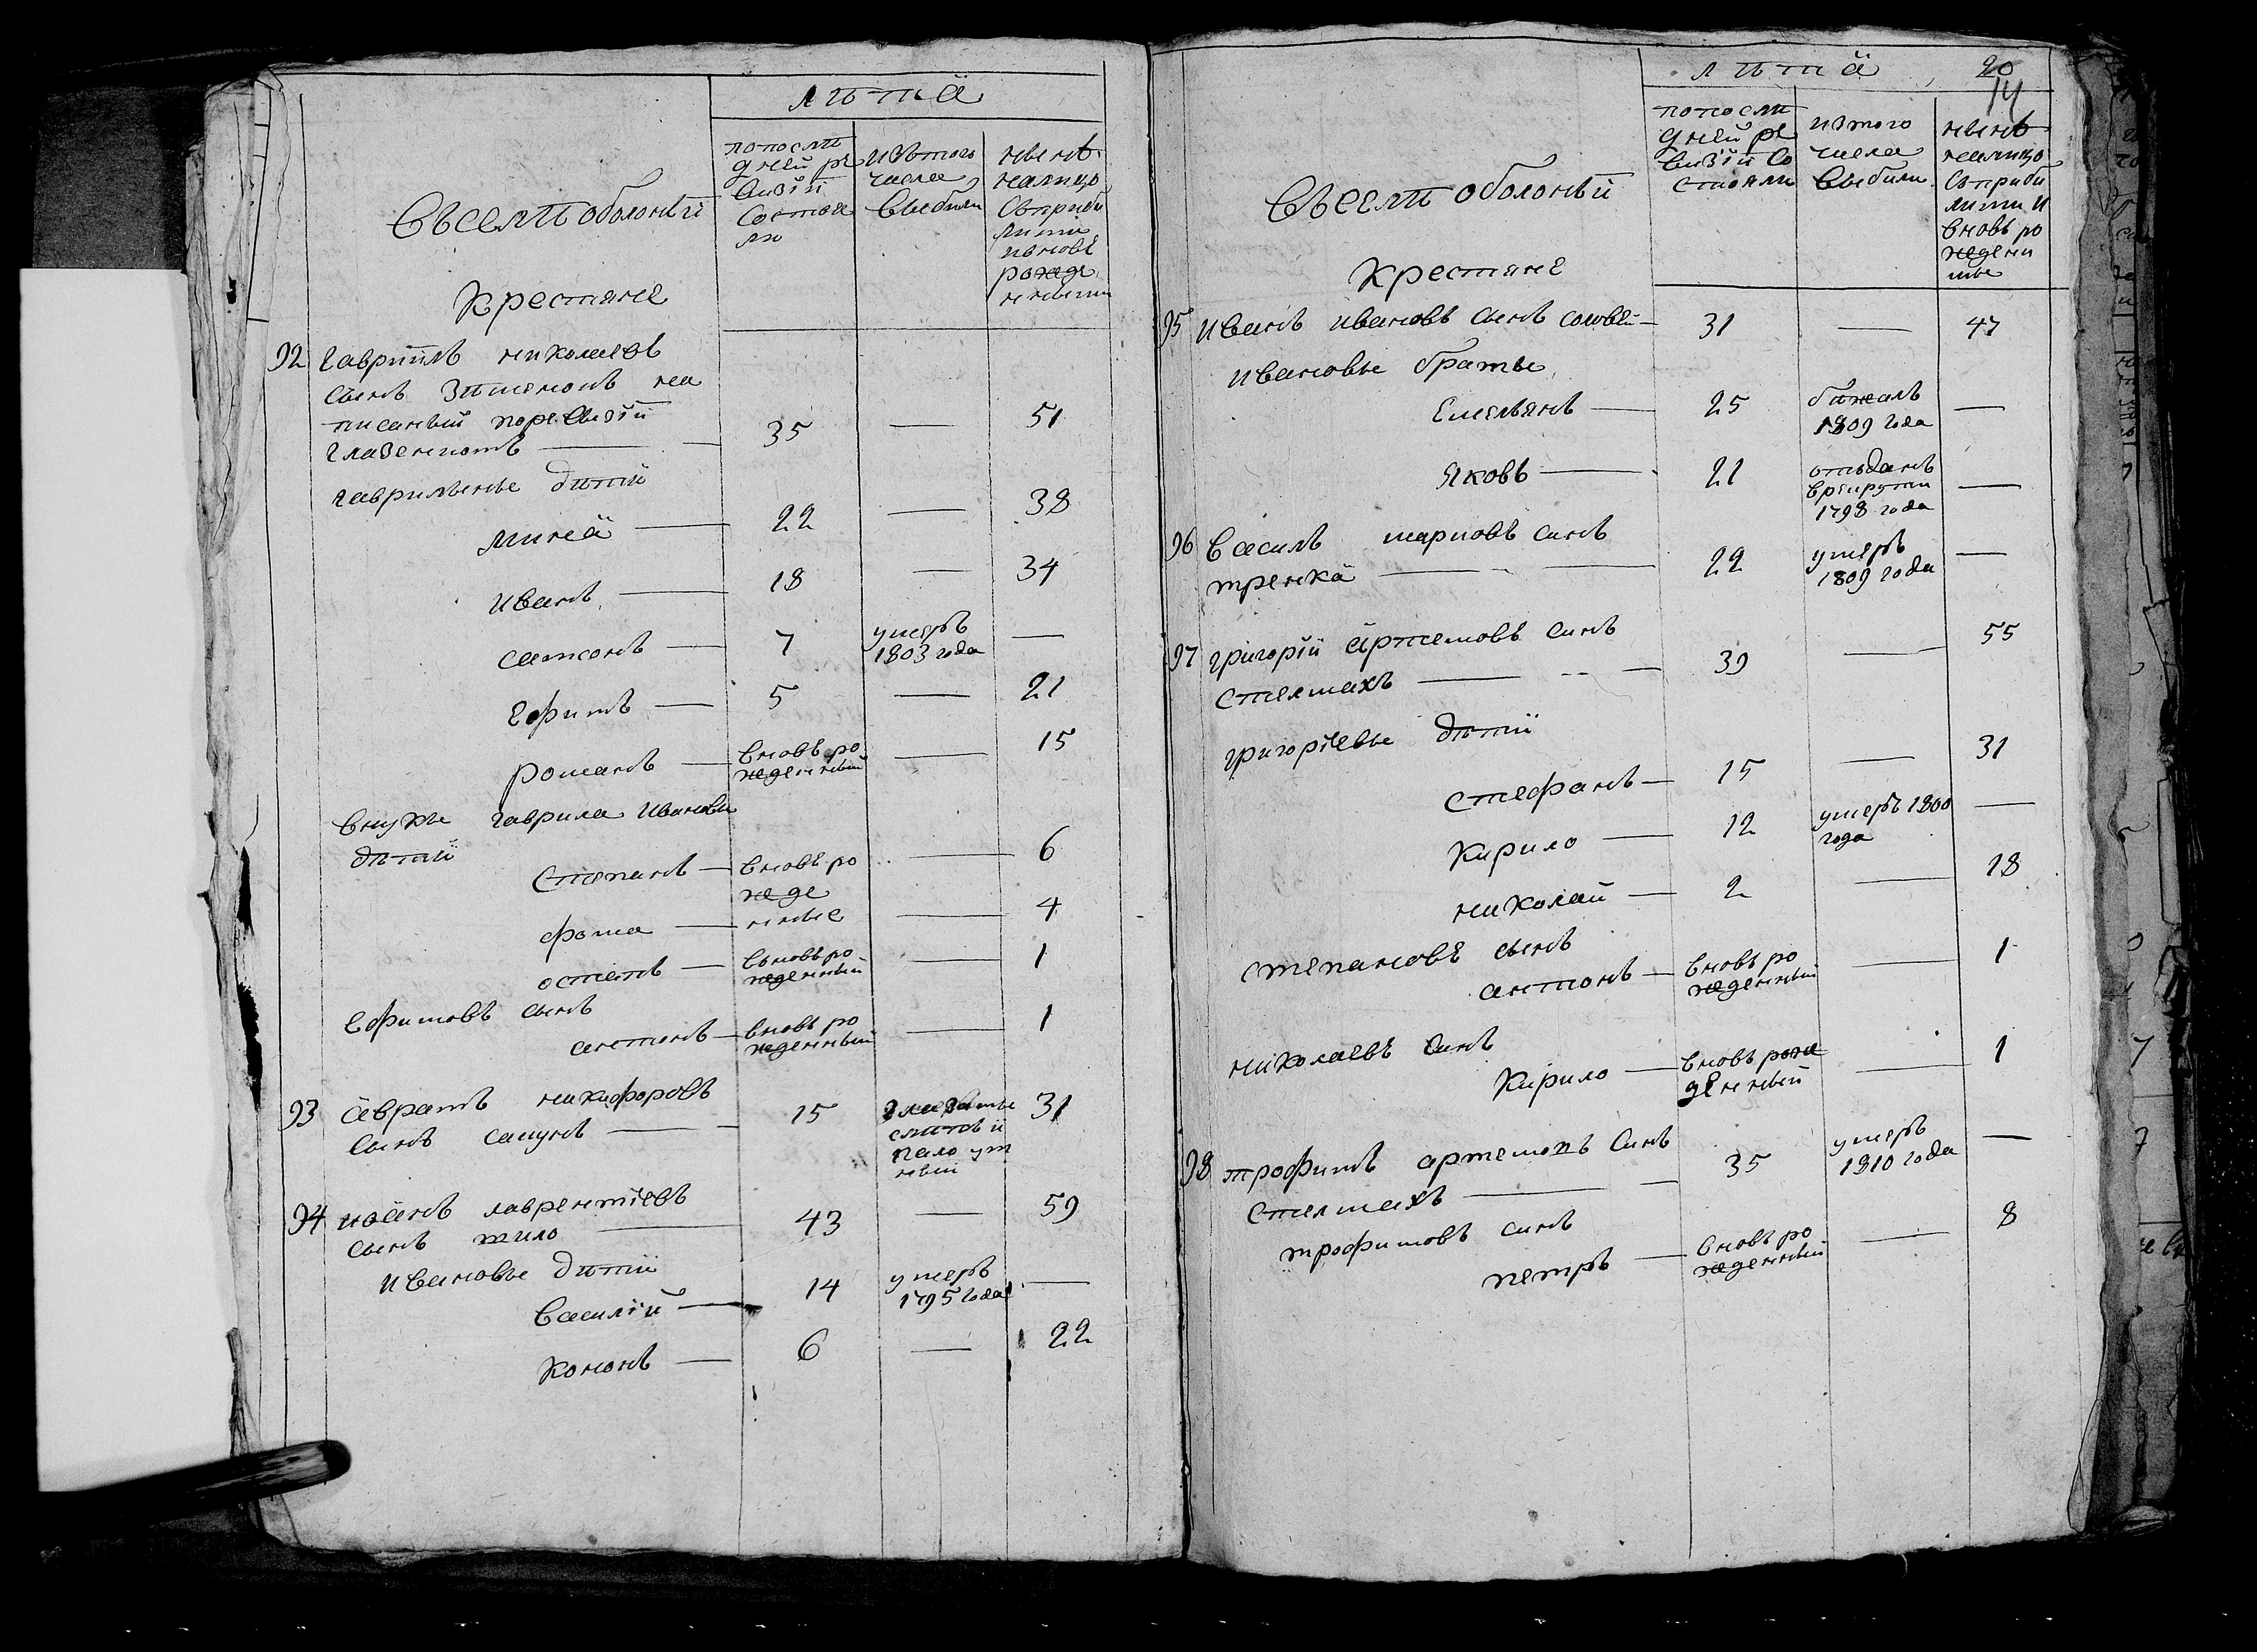 лѣта
Въ селѣ оболоньи
по после
дней ре
визіи
состоя
ли
изътого
числа
выбыли
нынѣ
налицо
съприбы
лими
ивновь
рожде
нными
Крестяне
92 гавриилъ николаевъ
сынъ на
писаный поревизіи
35 — 51
гаврилины дѣти
мина — 22 — 38
иванъ — 18 — 34
самсонъ — 7 умеръ 1803 года —
ефимъ — 5 — 21
романъ — вновь рожденный — 15
внуки гаврила ивановы
дѣти
степанъ — вновь ро
жде
6
фома — нные — 4
остапъ — вьновь рожденный — 1
ефимовъ сынъ
антонъ — вновь рожденный — 1
93 аврамъ никифоровъ
сынъ сацунъ — 15 31
94 иванъ лаврентіевъ
сынъ жило — 43 — 59
ивановы дѣти
василій — 14 умеръ 1795 года —
кононъ — 6 — 22
лѣта
20
14
Въ селѣ оболоньи
по после
дней ре
визіи со
стояли
изтого
числа
выбыли
нынѣ
налицо
съприбы
лими и
вновь ро
ждени
ми
Крестяне
95 иванъ ивановъ сынъ соловей — 31 — 47
ивановы братья
емельянъ — 25 бѣжалъ 1809 года —
яковъ — 21 отъданъ врекруты 1798 года —
96 василь марковъ синъ
тренка — 22 умеръ 1809 года —
97 григорій артемовъ синъ
стелмахъ — 39 — 55
григоріевы дѣти
стефанъ — 15 — 31
кирило — 12 умеръ 1800 года —
николай — 2 — 18
степановъ сынъ
антонъ — вновь рожденный — 1
николаевъ синъ
кирило — вновь рожденный — 1
98 трофимъ артемовъ синъ
стелмахъ — 35 умеръ 1810 года —
трофимовъ синъ
петръ — вновь рожденный — 8